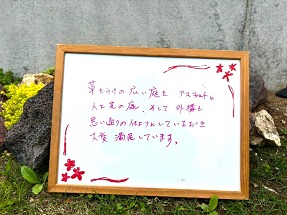 草だらけの広い庭を
人工芝の庭、そして外構も
思い通りの仕上りにしていただき
大変満足しています。